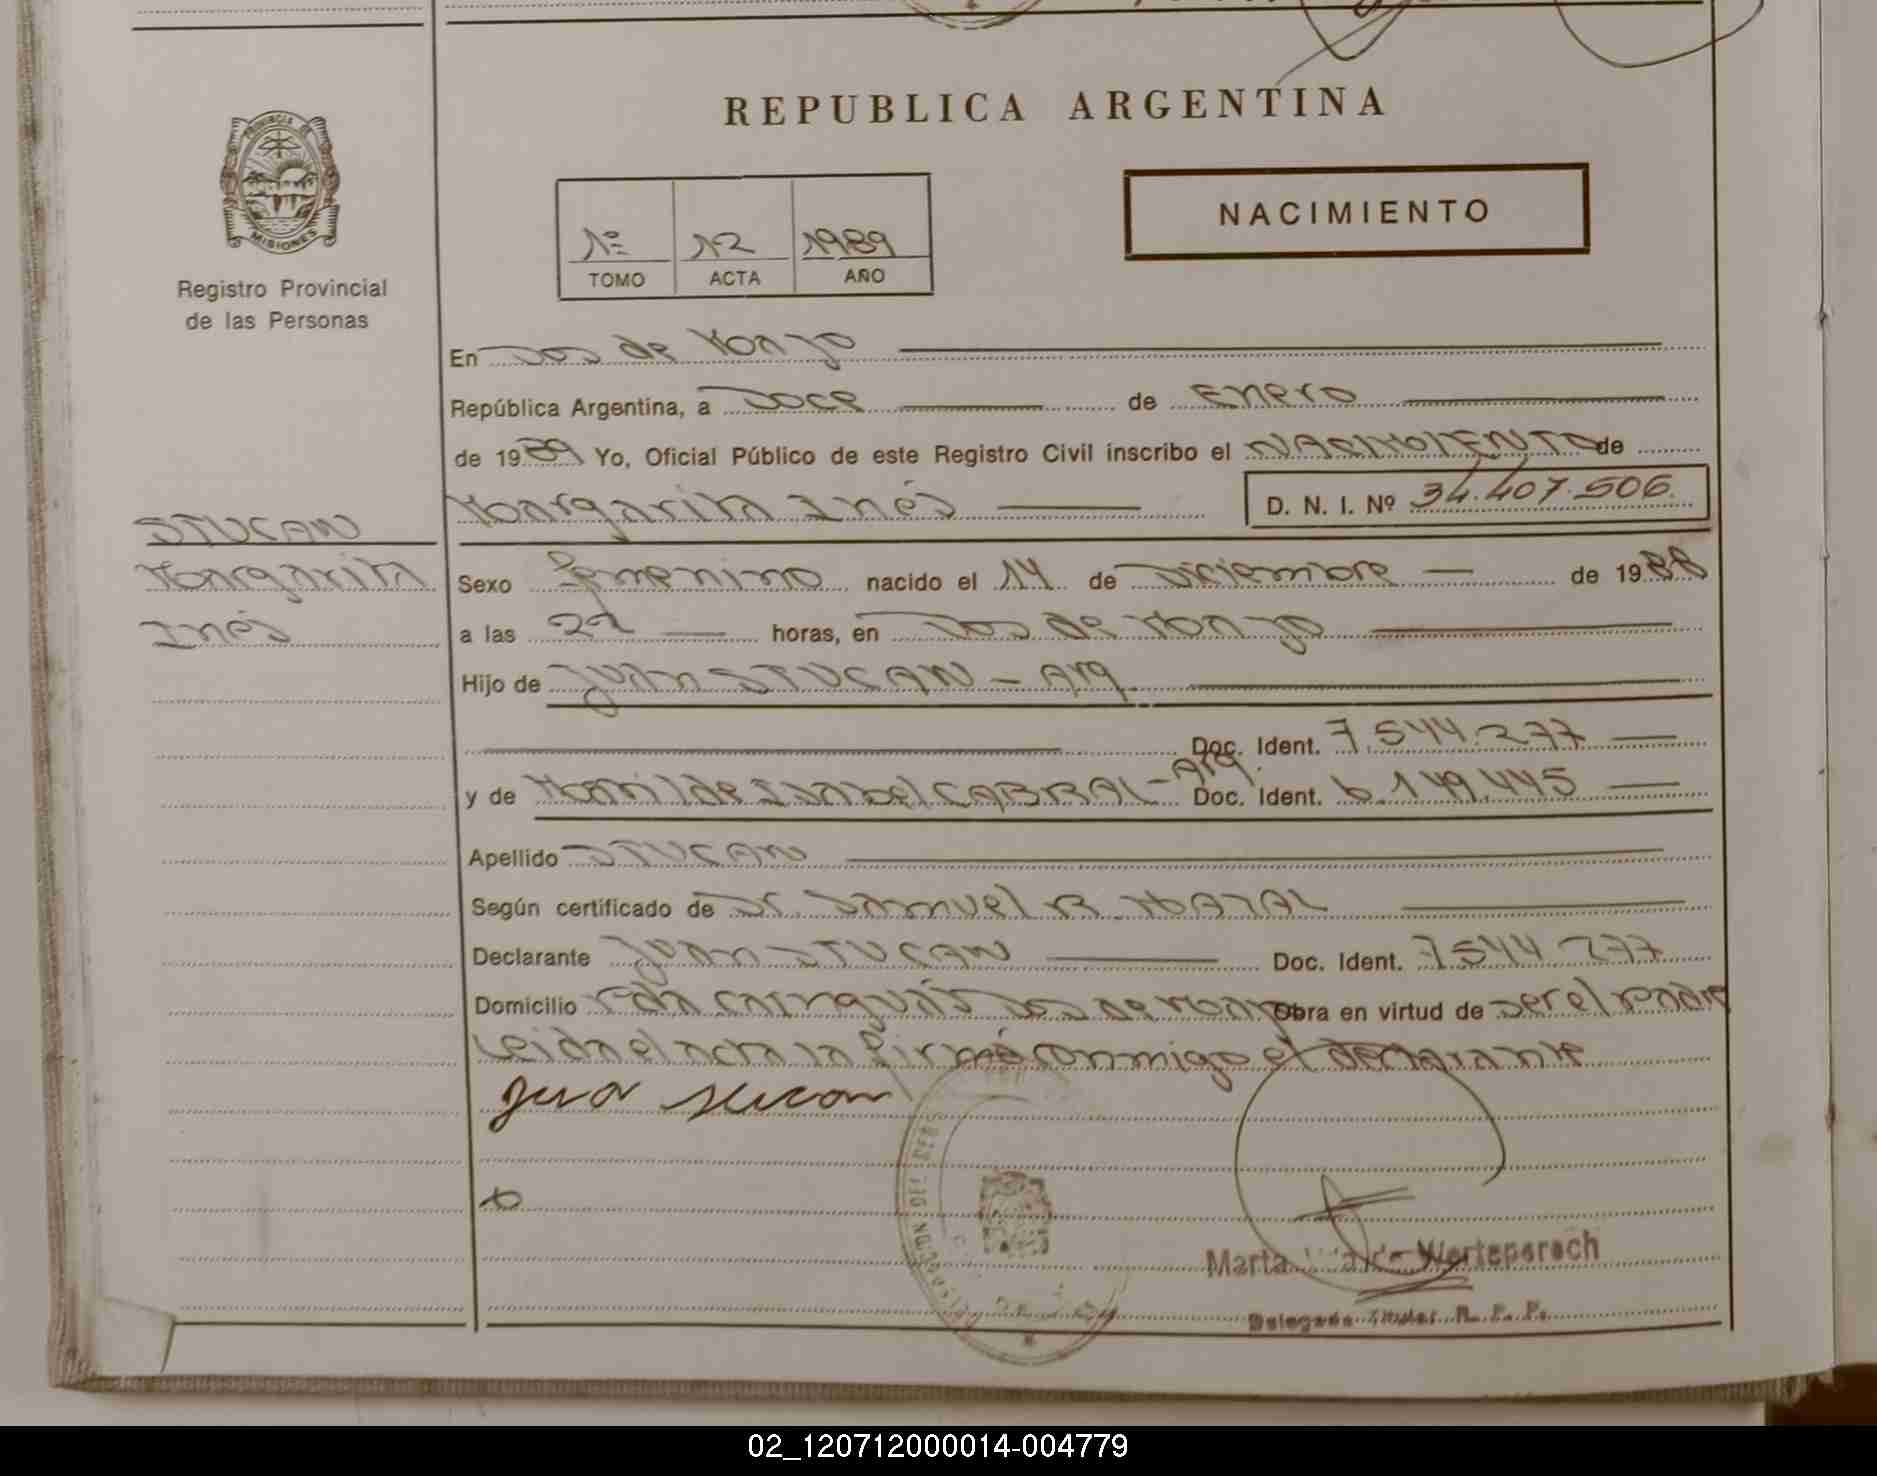 REPUBLICA ARGENTINA
PROVINCIA DE
MISIONES
Registro Provincial
de las Personas
1º 12 1989
TOMO ACTA AÑO
NACIMIENTO
En Dos de Mayo
República Argentina, a Doce de Enero
de 1989 Yo, Oficial Público de este Registro Civil inscribo el NACIMIENTO de
Margarita Inés D. N. I. Nº 34.407.506
STUCAN
Margarita
Inés
Sexo femenino nacido el 14 de Diciembre de 1988
a las horas, en Dos de Mayo
Hijo de Juan STUCAN - Arg.
Doc. Ident. 7.544.277
y de Isabel CABRAL - Arg. Doc. Ident. 6.149.445
Apellido STUCAN
Según certificado de Dr. Samuel R.
Declarante Juan STUCAN Doc. Ident. 7.544.277
Domicilio Dos de Mayo Obra en virtud de ser el Padre
Leida el acta la firmó conmigo el declarante
Marta Werteperech
Delegada Titular R. P. P.
02_120712000014-004779